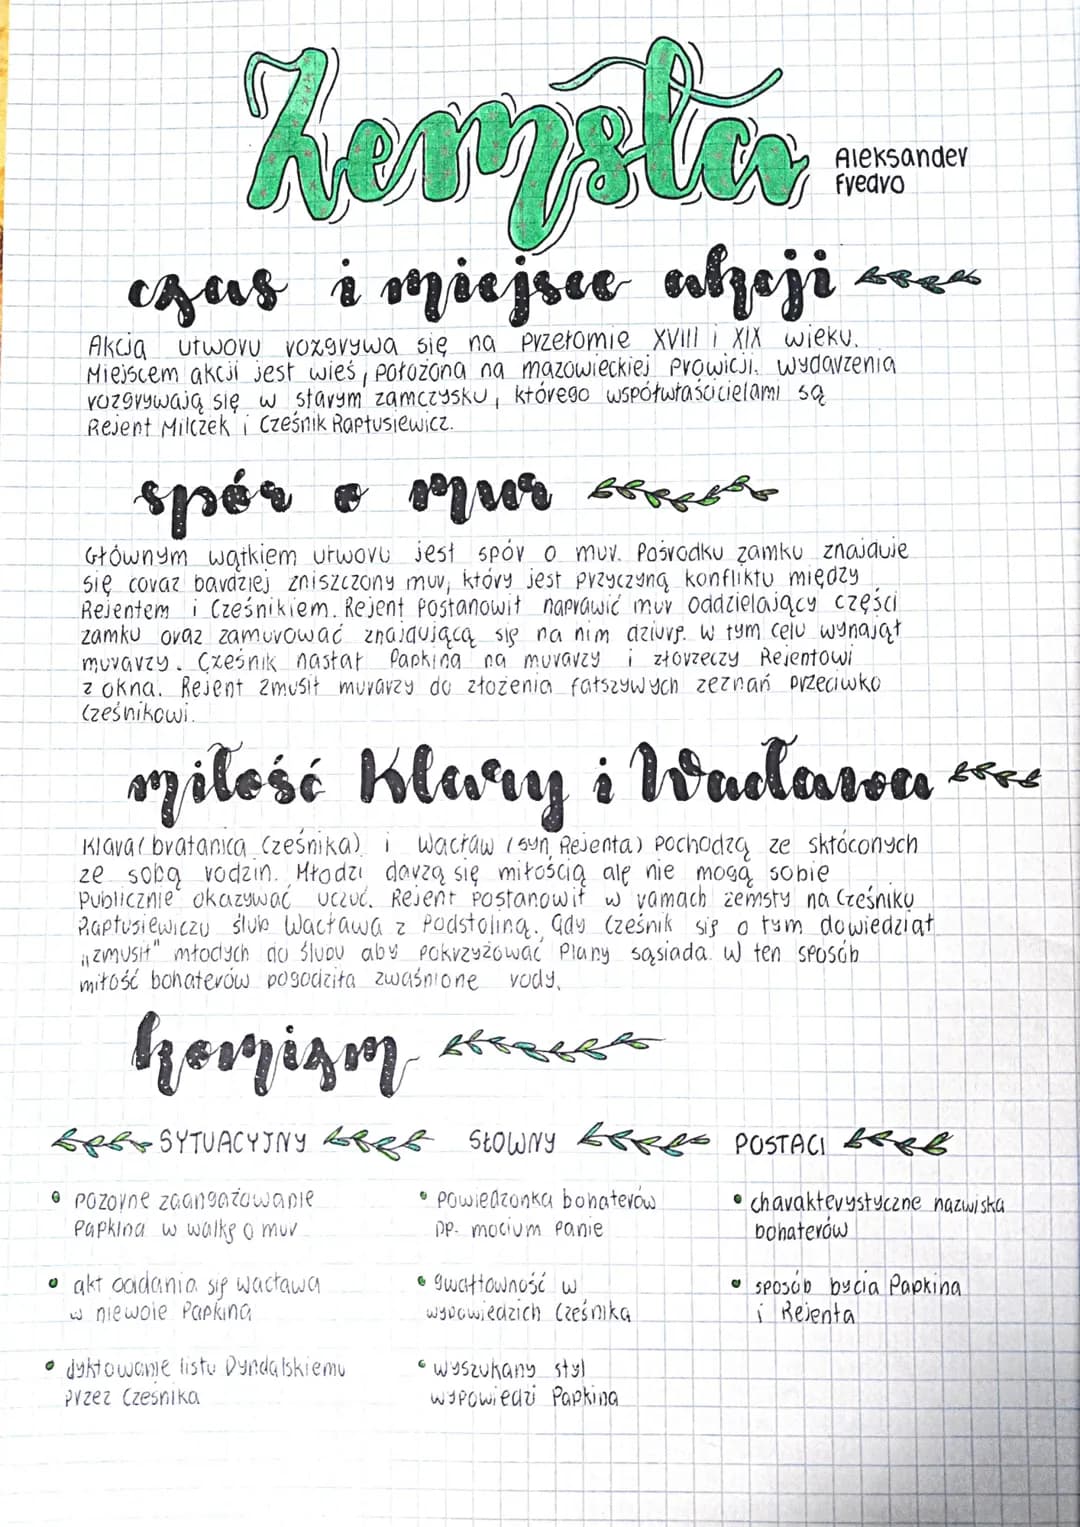 Zemsta
Aleksander
Fredro
czas i miejsce akcji
Akcja utworu rozgrywa się na przełomie XVIII i XIX wieku.
Miejscem akcji jest wieś, położona na mazowieckiej prowicji. wydarzenia
rozgrywają się w starym zamczysku, którego współwłaścicielami są
Rejent Milczek i Cześnik Raptusiewicz.
spór o mur
Głównym wątkiem utworu jest spór o mur. Pośrodku zamku znajduje
się coraz bardziej zniszczony mur, który jest przyczyną konfliktu między
Rejentem i Cześnikiem. Rejent postanowił naprawić mur oddzielający części
zamku oraz zamurować znajdującą się na nim dziurę. w tym celu wynajął
murarzy. Cześnik nasłał Papkina na murarzy i złorzeczy Rejentowi
z okna. Rejent zmusił murarzy do złożenia fałszywych zeznań przeciwko
Cześnikowi.
miłość Klary i Wacława
Klara (bratanica Cześnika) i Wacław (syn Rejenta) pochodzą ze skłóconych
ze sobą rodzin. Młodzi darzą się miłością ale nie mogą sobie
publicznie okazywać uczuć. Rejent postanowił w ramach zemsty na Cześniku
Raptusiewiczu ślub Wacława z Podstoliną. Gdy Cześnik się o tym dowiedział
„zmusił" młodych do ślubu aby pokrzyżować plany sąsiada. W ten sposób
miłość bohaterów pogodziła zwaśnione rody.
komizm
SYTUACYJNY SŁOWNY POSTACI
• pozorne zaangażowanie
Papkina w walkę o mur
• akt oddania się Wacława
w niewole Papkina
• dyktowanie listu Dyndalskiemu
przez Cześnika
• powiedzonka bohaterów
np. mocium panie
• gwałtowność w
wypowiedzich Cześnika
• wyszukany styl
wypowiedzi Papkina
• charakterystyczne nazwiska
bohaterów
• sposób bycia Papkina
i Rejenta